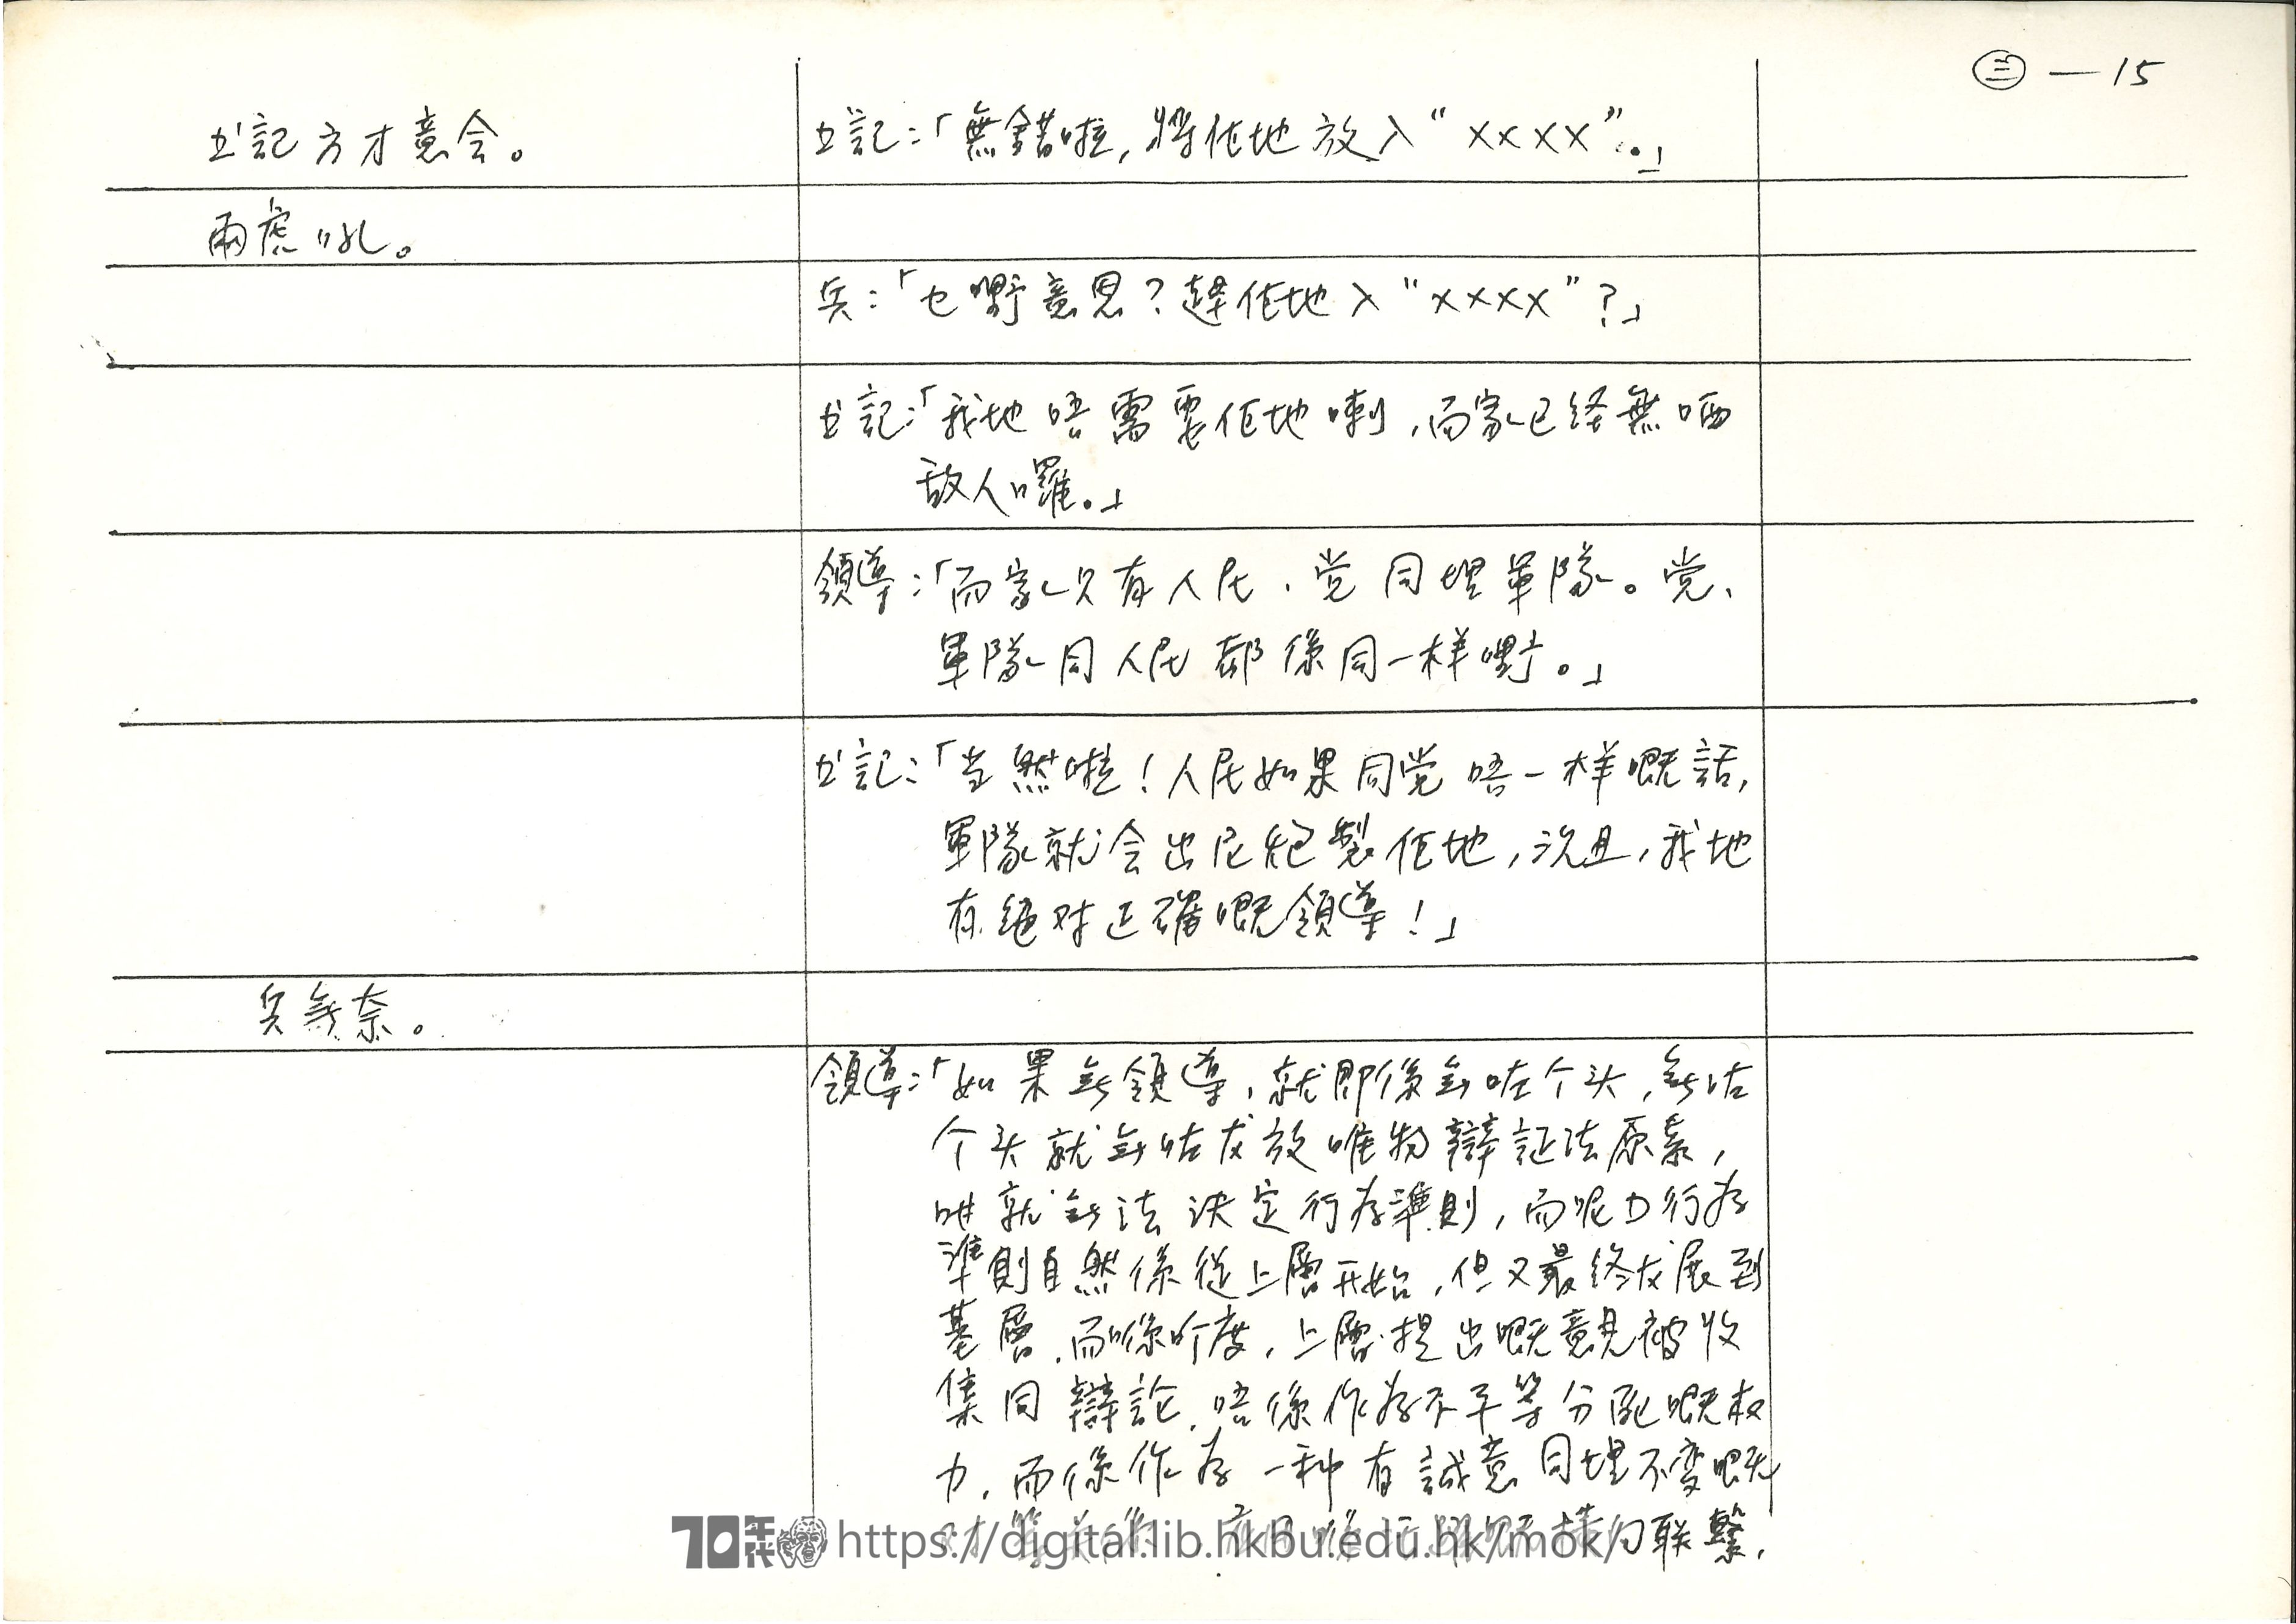 ㊂—15
书記方才意会。
书記：「無錯啦，將佢地放入“××××”。」
兩虎吼。
兵：「乜嘢意思？趕佢地入“××××”？」
书記：「我地唔需要佢地喇，而家已経無哂
敌人囉。」
領導：「而家只有人民、党同埋軍隊。党、
軍隊同人民都係同一样嘢。」
书記：「当然啦！人民如果同党唔一样嘅話，
軍隊就会出尼炮製佢地，况且，我地
有絕对正確嘅領導！」
兵無奈。
領導：「如果無領導，就即係無咗个头，無咗
个头就無咗发放唯物辯証法原素，
咁就無法決定行为準則，而呢D行为
準則自然係從上層开始，但又最終发展到
基層，而喺吤度，上層提出嘅意見被收
集同辯論，唔係作为不平等分配嘅权
力，而係作为一种有誠意同埋不变嘅
联繫，
70年代 https://digital.lib.hkbu.edu.hk/mok/